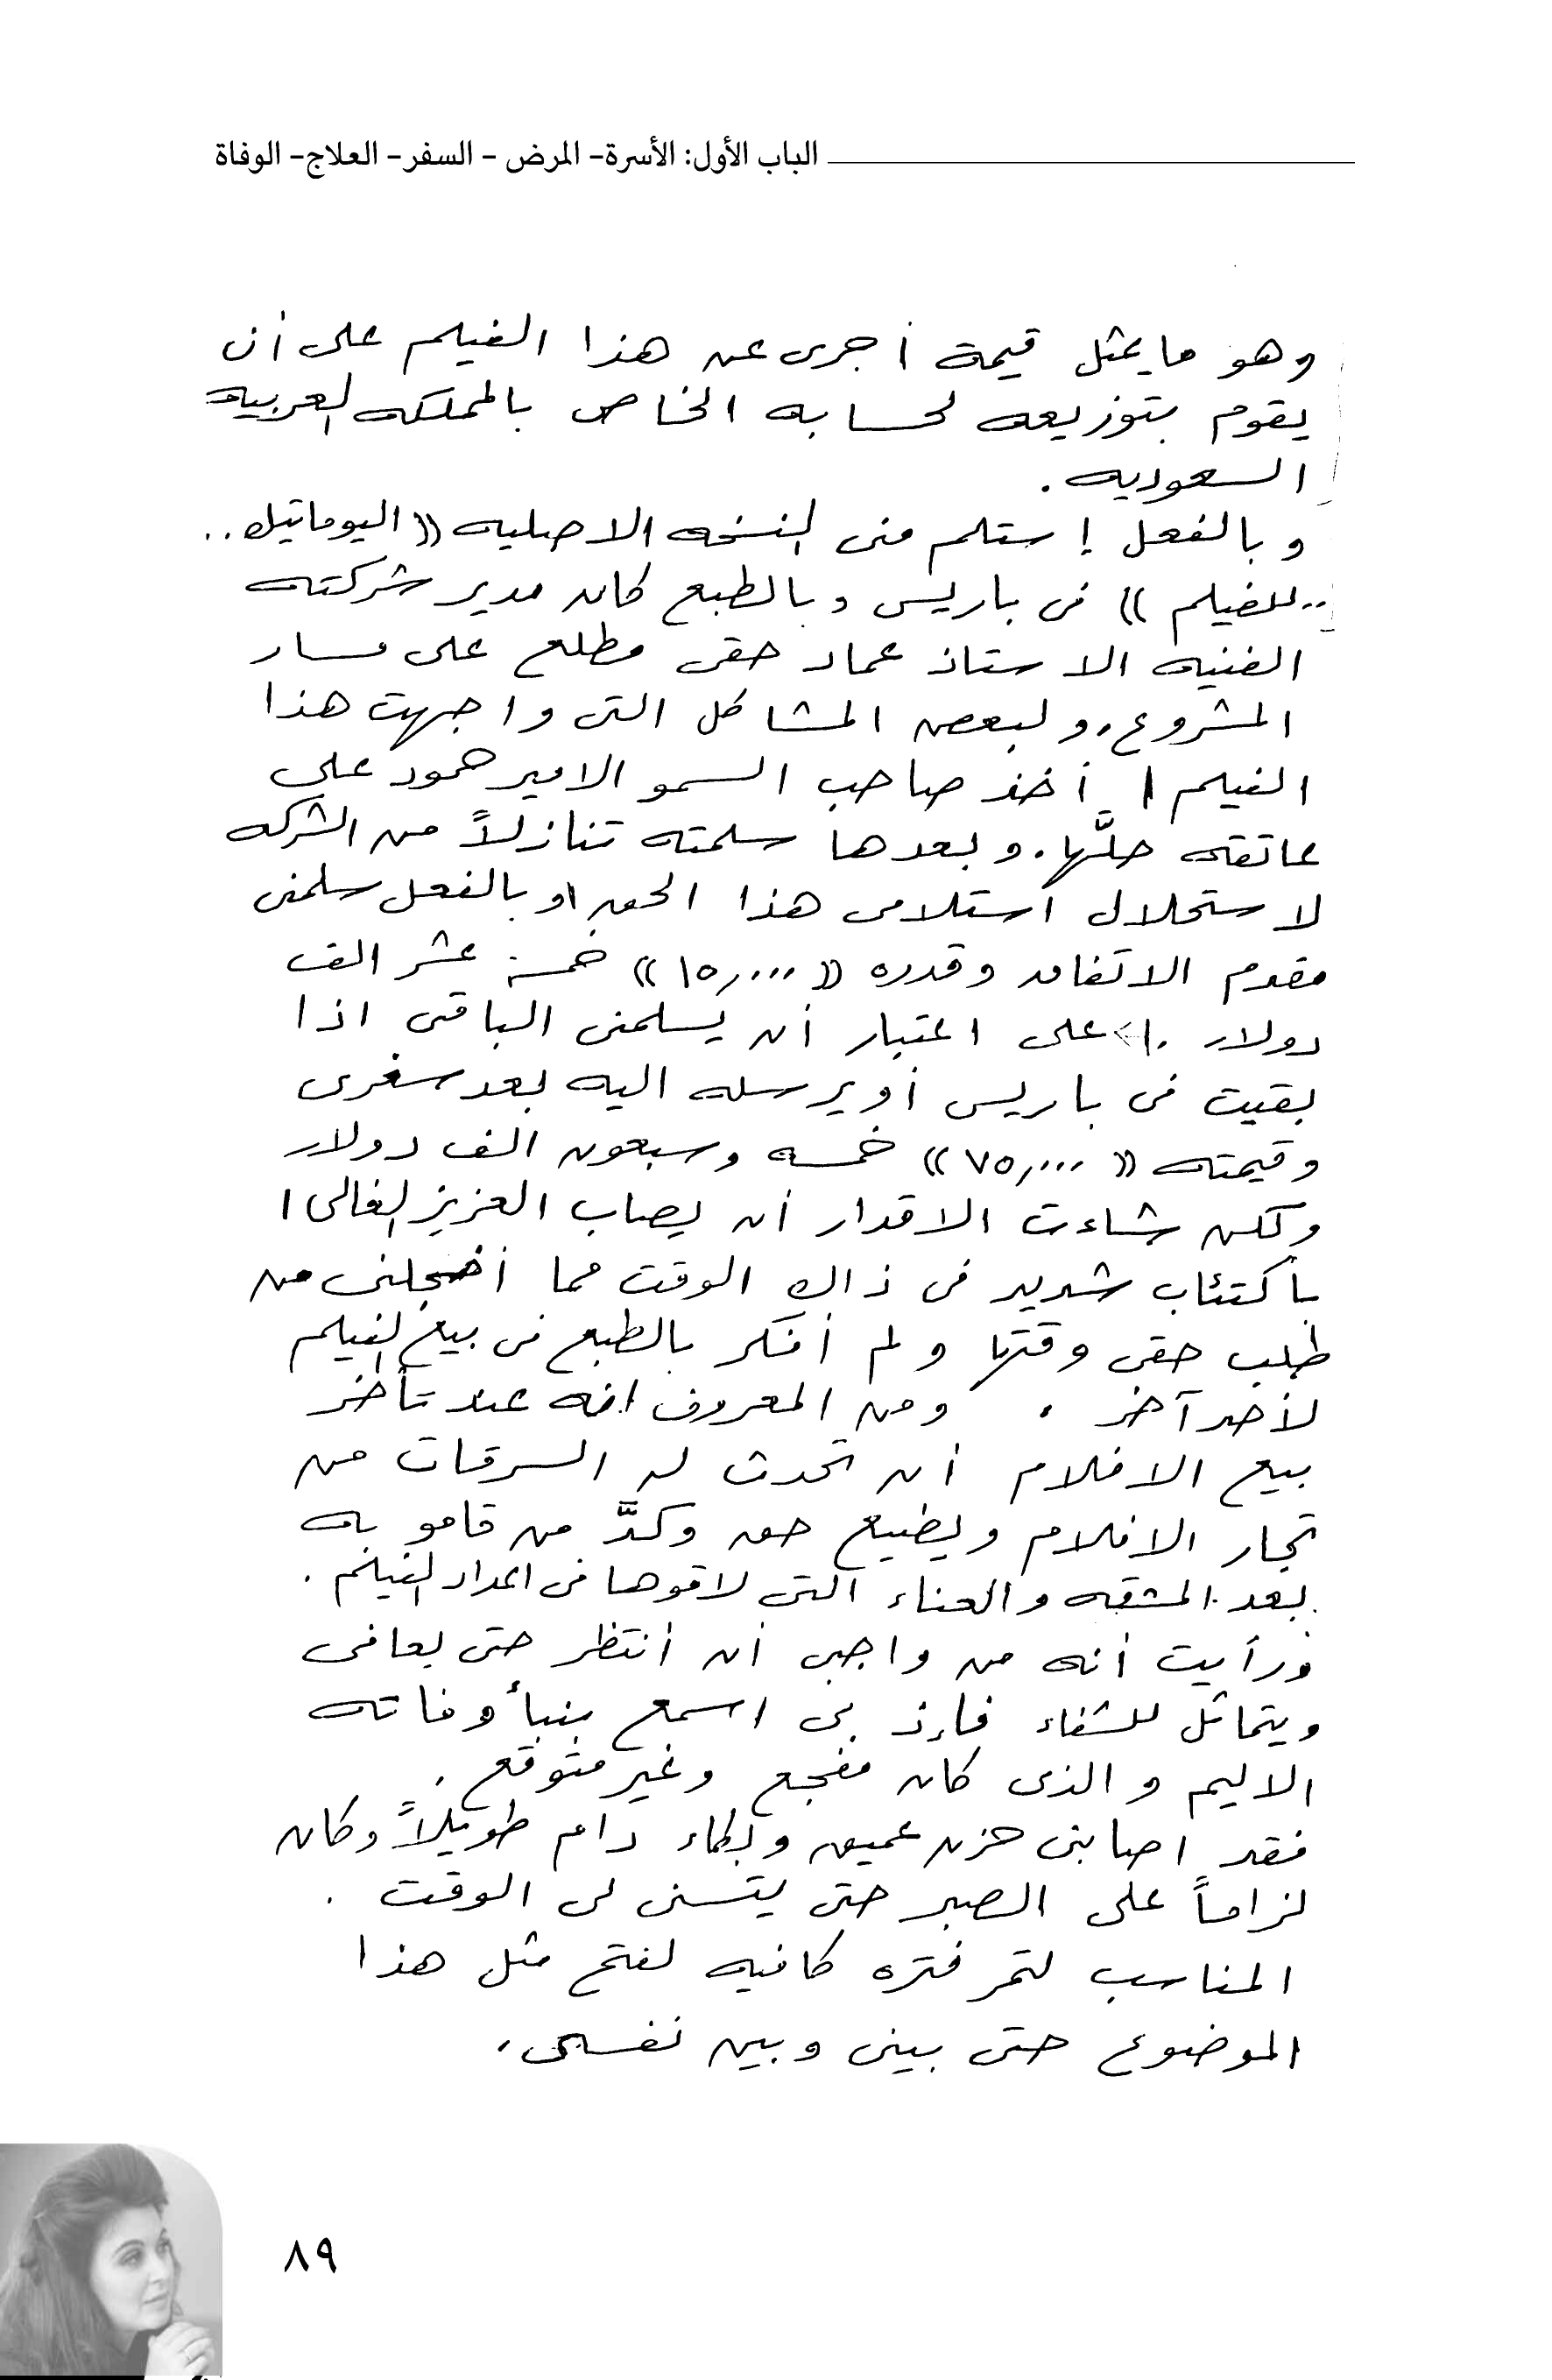 الباب الأول: الأسرة- المرض - السفر- العلاج- الوفاة
وهو ما يمثل قيمة أجرى عن هذا الفيلم على أن
يقوم بتوزيعه لحسابه الخاص بالمملكه العربيه
السعوديه .
وبالفعل إستلم منى النسخه الاصليه (( اليوماتيك ..
.. للفيلم )) فى باريس وبالطبع كان مدير شركته
الفنيه الاستاذ عماد حقى مطلع على مسار
المشروع، ولبعض المشاكل التى واجهت هذا
الفيلم أخذ صاحب السمو الامير حمود على
عاتقه حلَّها . وبعدها سلمته تنازلاً من الشركه
لاستحلال استلامى هذا الحق وبالفعل سلمنى
مقدم الاتفاق وقدره (( ١٥,٠٠٠ )) خمسة عشر الف
دولار . على اعتبار أن يسلمنى الباقى اذا
بقيت فى باريس أو يرسله اليه بعد سفرى
وقيمته (( ٧٥,٠٠٠ )) خمسه وسبعون الف دولار
ولكن شاءت الاقدار أن يصاب العزيز الغالى
بأكتئاب شديد فى ذاك الوقت مما أخجلنى من
طلب حقى وقتها ولم أفكر بالطبع فى بيع الفيلم
لأحد آخر . ومن المعروف انه عند تأخر
بيع الافلام أن تحدث له السرقات من
تجار الافلام ويضيع حق وكدَّ من قامو به
بعد المشقه والعناء التى لاقوها فى اعداد الفيلم .
فرأيت أنه من واجبى أن أنتظر حتى يعافى
ويتماثل للشفاء فإذ بى اسمع بنبأ وفاته
الاليم والذى كان مفجع وغير متوقع .
فقد اصابنى حزن عميق وبكاء دام طويلاً وكان
لزاماً على الصبر حتى يتسنى لى الوقت .
المناسب لتمر فتره كافيه لفتح مثل هذا
الموضوع حتى بينى وبين نفسى .
٨٩